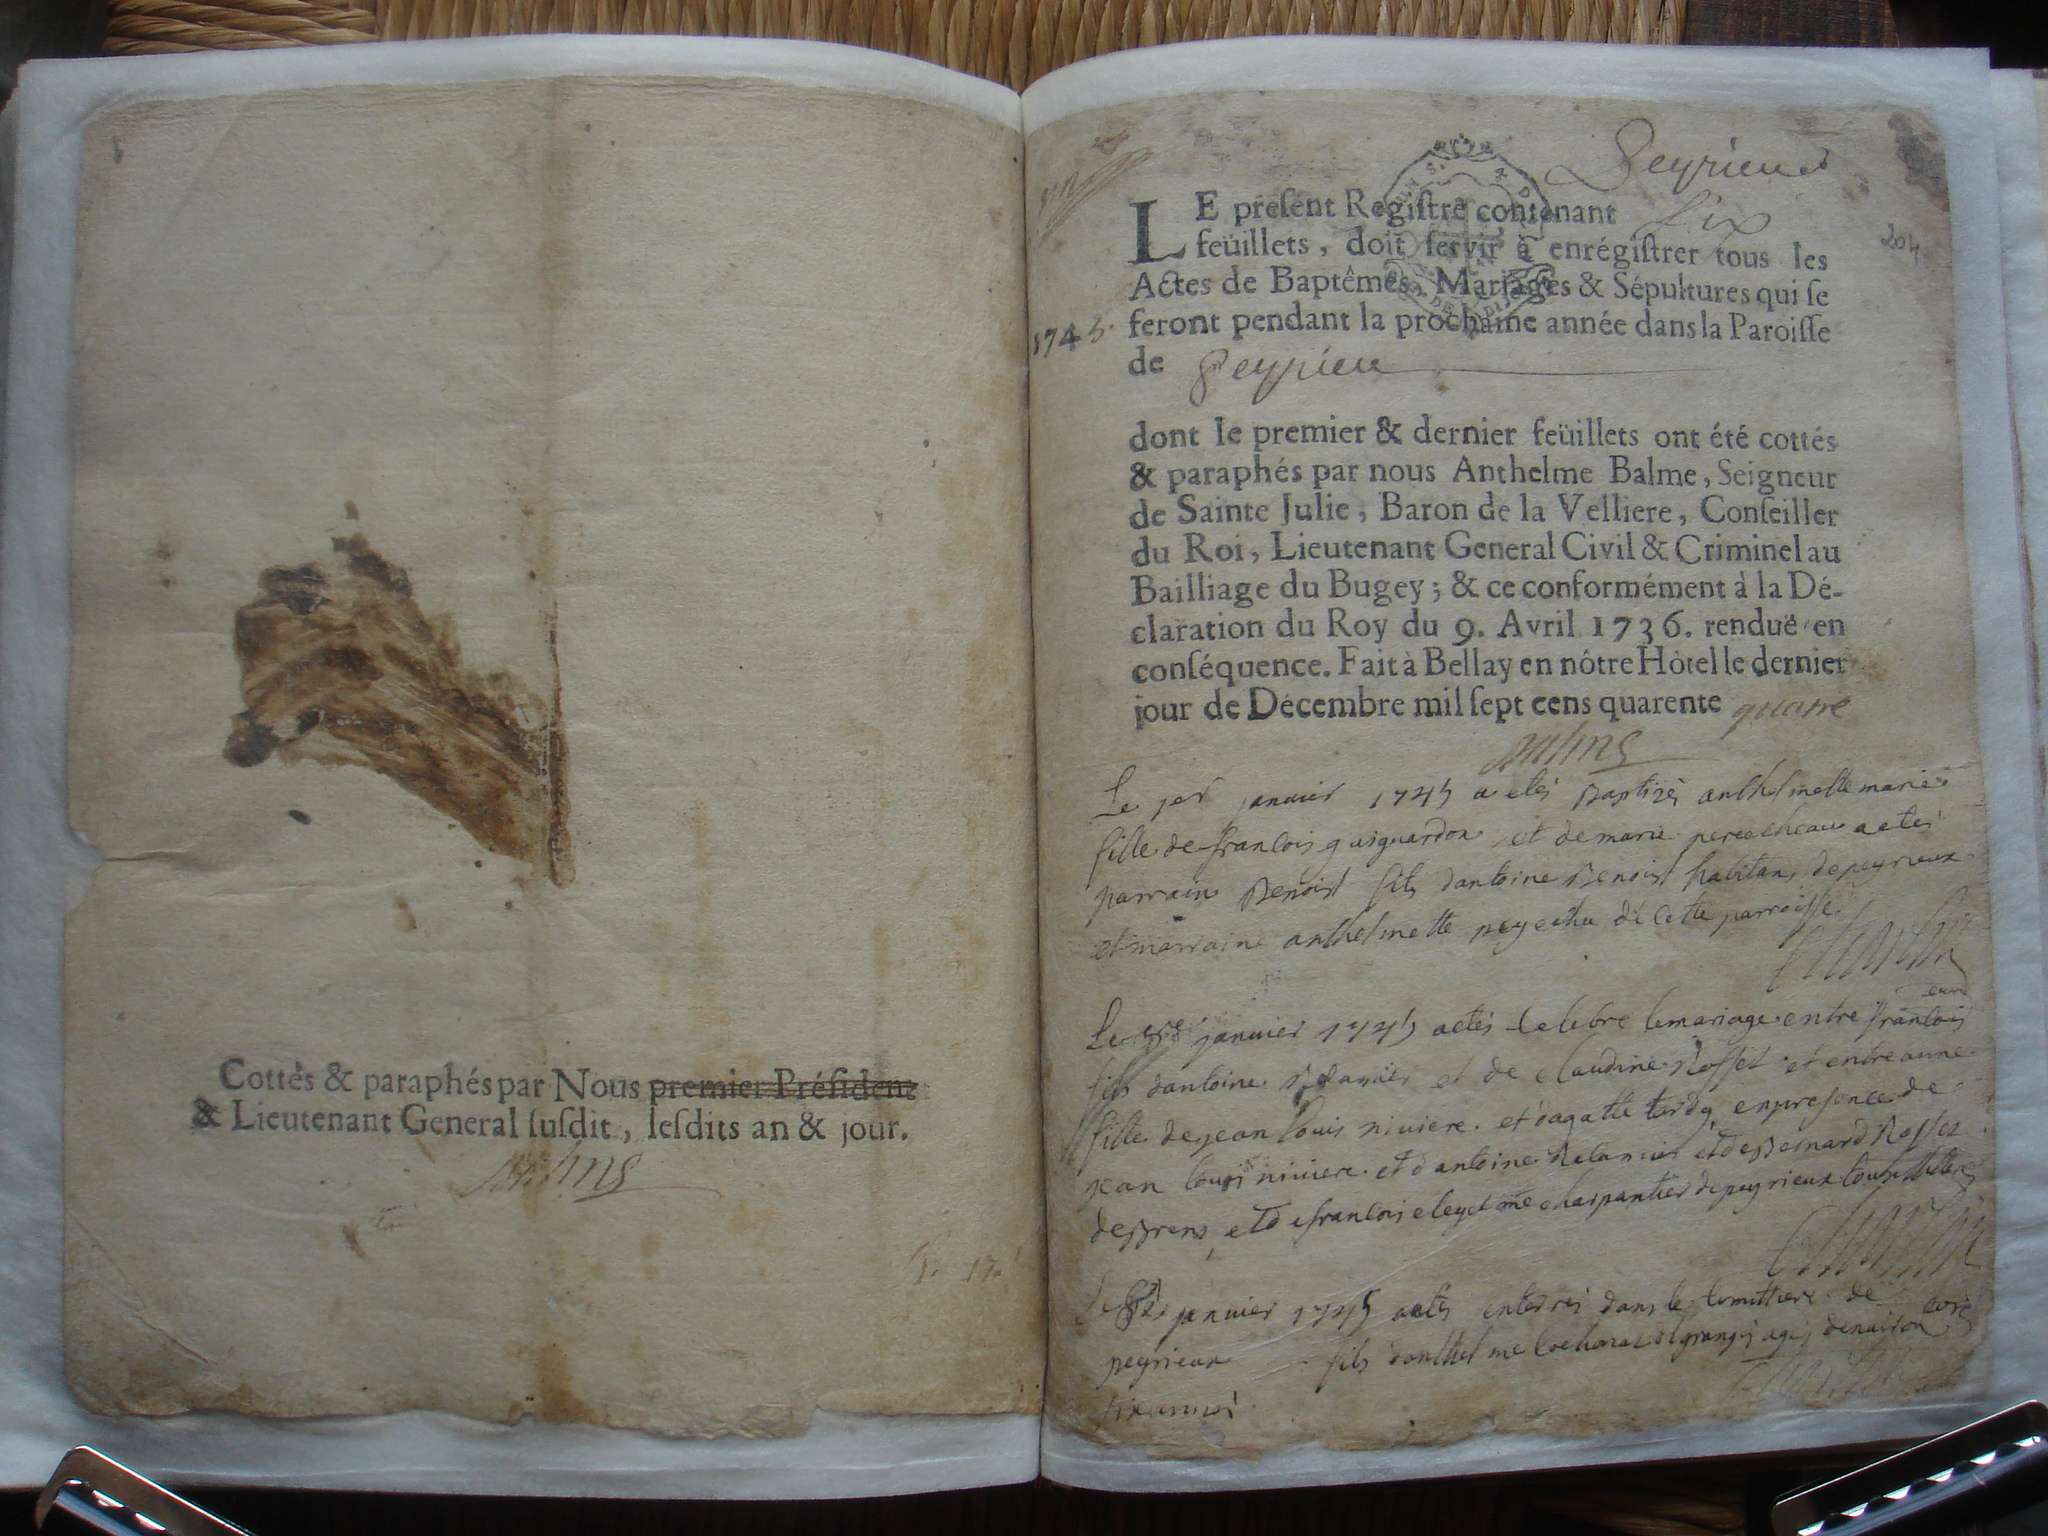 Cottés & paraphés par Nous premier Préſident
& Lieutenant General ſuſdit, leſdits an & jour.
17.
Peyrieu
LE preſent Regiſtre contenant ſix
feüillets, doit ſervir à enrégiſtrer tous les
204
Actes de Baptêmes, Mariages & Sépultures qui ſe
1745. feront pendant la prochaine année dans la Paroiſſe
de Peyrieu
dont le premier & dernier feüillets ont été cottés
& paraphés par nous Anthelme Balme, Seigneur
de Sainte Julie, Baron de la Velliere, Conſeiller
du Roi, Lieutenant General Civil & Criminel au
Bailliage du Bugey; & ce conformément à la Dé-
claration du Roy du 9. Avril 1736. renduë en
conſéquence. Fait à Bellay en nôtre Hôtel le dernier
jour de Décembre mil ſept cens quarente quatre
Le janvier 1745 a etés Baptizés anthelmette marie
fille de francois guiguardon et de marie a etés
parrain Benoist fils dantoine Benoist habitans de peyrieux
et marraine anthelmette de cette parroisse
curé
Le janvier 1745 a etés Celebre le mariage entre francois
fils dantoine et de claudine Rosset et entre anne
fille de jean louis niviere et dagatte tardy en presence de
jean louis niviere et dantoine et de Bernard Rosset
de Brens et de francois charpantier de peyrieux
Le janvier 1745 a etés enterrés dans le cimittiere de
curé
peyrieux fils danthelme agés denviron
six années